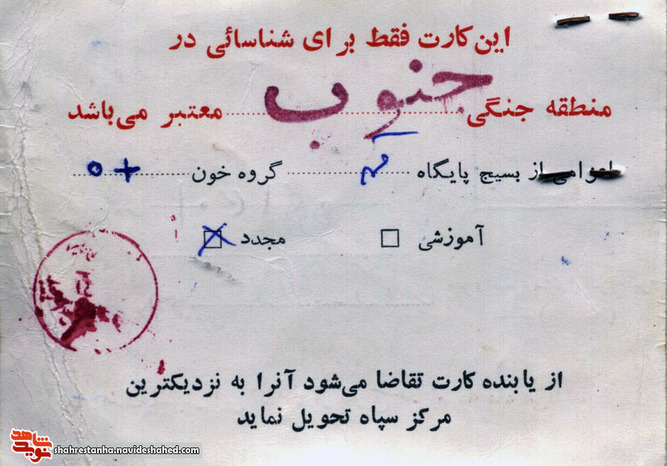 این کارت فقط برای شناسائی در
منطقه جنگی جنوب معتبر می‌باشد
اعزامی از بسیج پایگاه قم گروه خون O+
آموزشی مجدد
از یابنده کارت تقاضا می‌شود آنرا به نزدیکترین
مرکز سپاه تحویل نماید
نوید شاهد shahrestanha.navideshahed.com